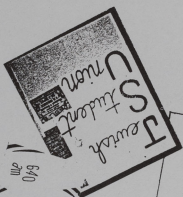 Jewish
Student
Union
640
am